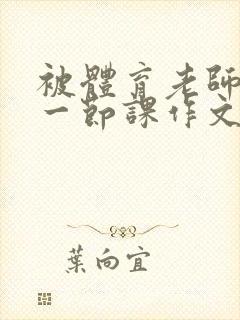 被體育老師
一節課作文
葉向宜